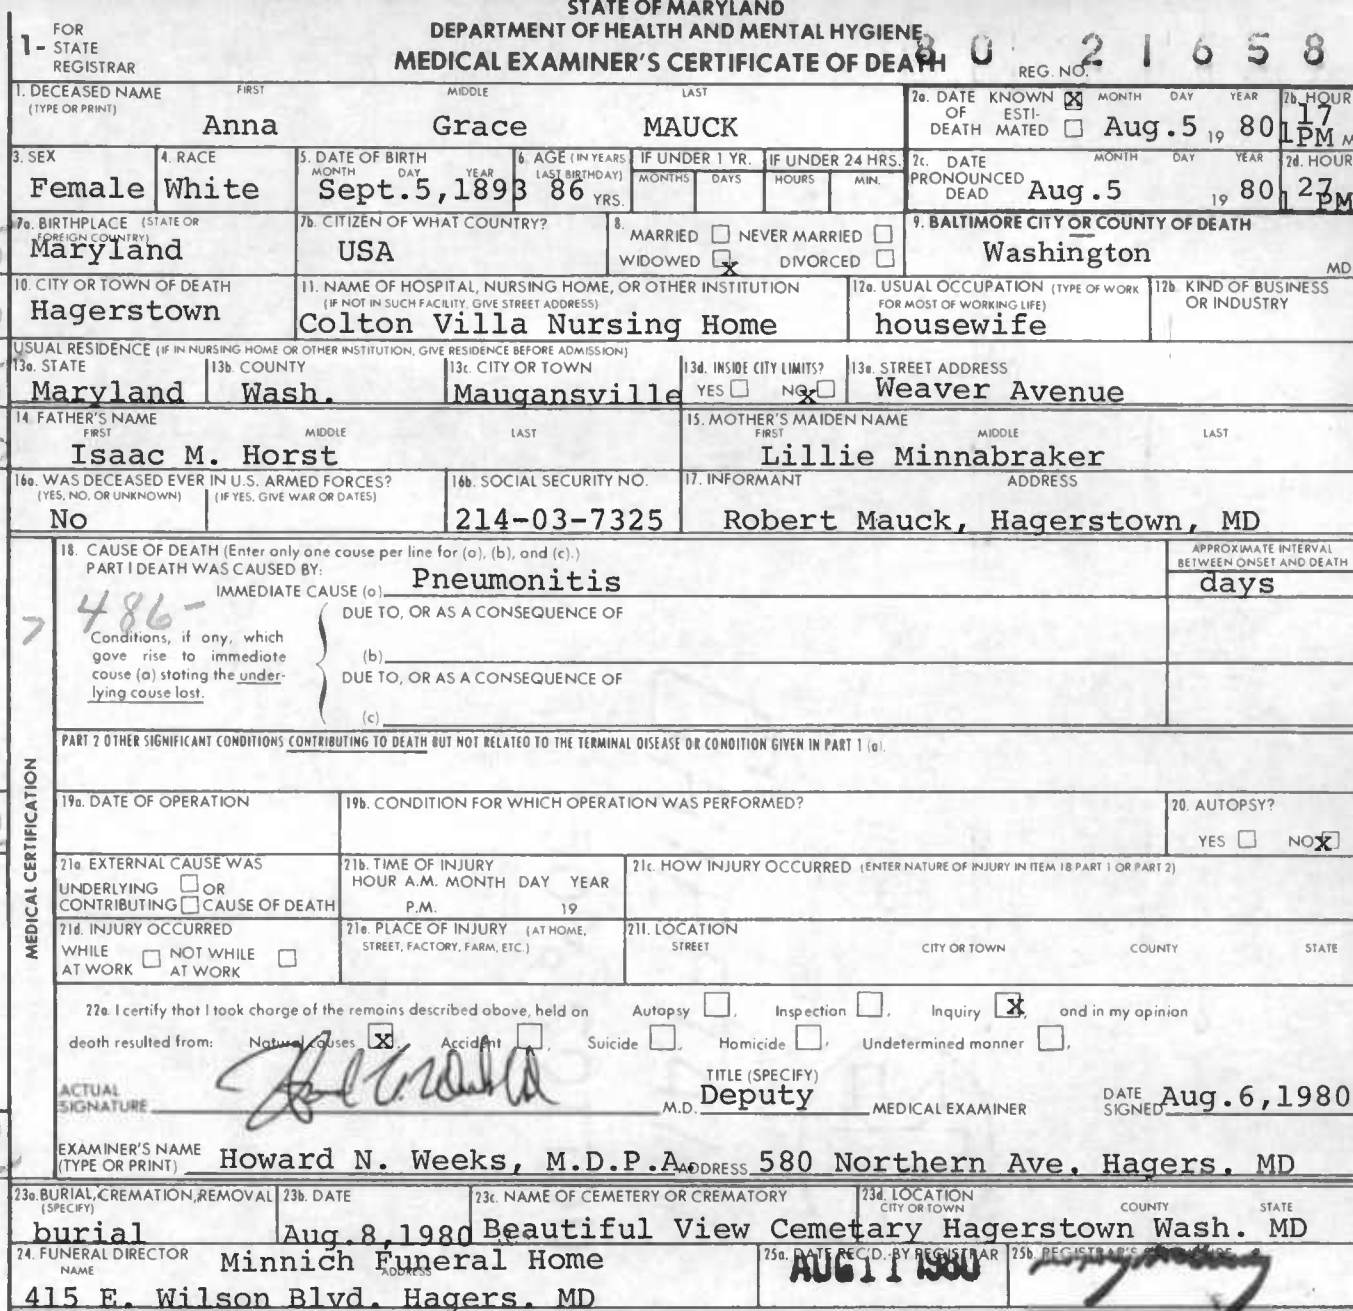 STATE OF MARYLAND
DEPARTMENT OF HEALTH AND MENTAL HYGIENE
MEDICAL EXAMINER'S CERTIFICATE OF DEATH
1- FOR STATE REGISTRAR
REG. NO. 80 21658
1. DECEASED NAME (TYPE OR PRINT) FIRST MIDDLE LAST
Anna Grace MAUCK
2a. DATE OF DEATH KNOWN X ESTIMATED MONTH DAY YEAR
Aug.5 19 80
2b. HOUR
1 17 PM M
3. SEX
Female
4. RACE
White
5. DATE OF BIRTH MONTH DAY YEAR
Sept.5,1893
6. AGE (IN YEARS LAST BIRTHDAY)
86 YRS.
IF UNDER 1 YR. MONTHS DAYS
IF UNDER 24 HRS. HOURS MIN.
2c. DATE PRONOUNCED DEAD MONTH DAY YEAR
Aug.5 19 80
2d. HOUR
1 27 PM
7a. BIRTHPLACE (STATE OR FOREIGN COUNTRY)
Maryland
7b. CITIZEN OF WHAT COUNTRY?
USA
8. MARRIED NEVER MARRIED
WIDOWED X DIVORCED
9. BALTIMORE CITY OR COUNTY OF DEATH
Washington MD
10. CITY OR TOWN OF DEATH
Hagerstown
11. NAME OF HOSPITAL, NURSING HOME, OR OTHER INSTITUTION
(IF NOT IN SUCH FACILITY, GIVE STREET ADDRESS)
Colton Villa Nursing Home
12a. USUAL OCCUPATION (TYPE OF WORK FOR MOST OF WORKING LIFE)
housewife
12b. KIND OF BUSINESS OR INDUSTRY
USUAL RESIDENCE (IF IN NURSING HOME OR OTHER INSTITUTION, GIVE RESIDENCE BEFORE ADMISSION)
13a. STATE
Maryland
13b. COUNTY
Wash.
13c. CITY OR TOWN
Maugansville
13d. INSIDE CITY LIMITS?
YES NO X
13e. STREET ADDRESS
Weaver Avenue
14. FATHER'S NAME FIRST MIDDLE LAST
Isaac M. Horst
15. MOTHER'S MAIDEN NAME FIRST MIDDLE LAST
Lillie Minnabraker
16a. WAS DECEASED EVER IN U.S. ARMED FORCES?
(YES, NO, OR UNKNOWN) (IF YES, GIVE WAR OR DATES)
No
16b. SOCIAL SECURITY NO.
214-03-7325
17. INFORMANT ADDRESS
Robert Mauck, Hagerstown, MD
MEDICAL CERTIFICATION
18. CAUSE OF DEATH (Enter only one cause per line for (a), (b), and (c).)
PART I DEATH WAS CAUSED BY:
IMMEDIATE CAUSE (a) Pneumonitis
APPROXIMATE INTERVAL BETWEEN ONSET AND DEATH
days
486-
Conditions, if any, which
gave rise to immediate
cause (a) stating the under-
lying cause last.
DUE TO, OR AS A CONSEQUENCE OF
(b)
DUE TO, OR AS A CONSEQUENCE OF
(c)
PART 2 OTHER SIGNIFICANT CONDITIONS CONTRIBUTING TO DEATH BUT NOT RELATED TO THE TERMINAL DISEASE OR CONDITION GIVEN IN PART 1 (a).
19a. DATE OF OPERATION
19b. CONDITION FOR WHICH OPERATION WAS PERFORMED?
20. AUTOPSY?
YES NO X
21a EXTERNAL CAUSE WAS
UNDERLYING OR
CONTRIBUTING CAUSE OF DEATH
21b. TIME OF INJURY
HOUR A.M. MONTH DAY YEAR
P.M. 19
21c. HOW INJURY OCCURRED (ENTER NATURE OF INJURY IN ITEM 18 PART 1 OR PART 2)
21d. INJURY OCCURRED
WHILE AT WORK NOT WHILE AT WORK
21e. PLACE OF INJURY (AT HOME, STREET, FACTORY, FARM, ETC.)
21f. LOCATION
STREET CITY OR TOWN COUNTY STATE
22a. I certify that I took charge of the remains described above, held on Autopsy , Inspection , Inquiry X , and in my opinion
death resulted from: Natural causes X , Accident , Suicide , Homicide , Undetermined manner ,
ACTUAL SIGNATURE M.D.
TITLE (SPECIFY)
Deputy MEDICAL EXAMINER
DATE SIGNED Aug.6,1980
EXAMINER'S NAME (TYPE OR PRINT) Howard N. Weeks, M.D.P.A. ADDRESS 580 Northern Ave. Hagers. MD
23a. BURIAL, CREMATION, REMOVAL (SPECIFY)
burial
23b. DATE
Aug.8,1980
23c. NAME OF CEMETERY OR CREMATORY
Beautiful View Cemetary
23d. LOCATION CITY OR TOWN COUNTY STATE
Hagerstown Wash. MD
24. FUNERAL DIRECTOR NAME ADDRESS
Minnich Funeral Home
415 E. Wilson Blvd. Hagers. MD
25a. DATE REC'D. BY REGISTRAR
AUG 11 1980
25b. REGISTRAR'S